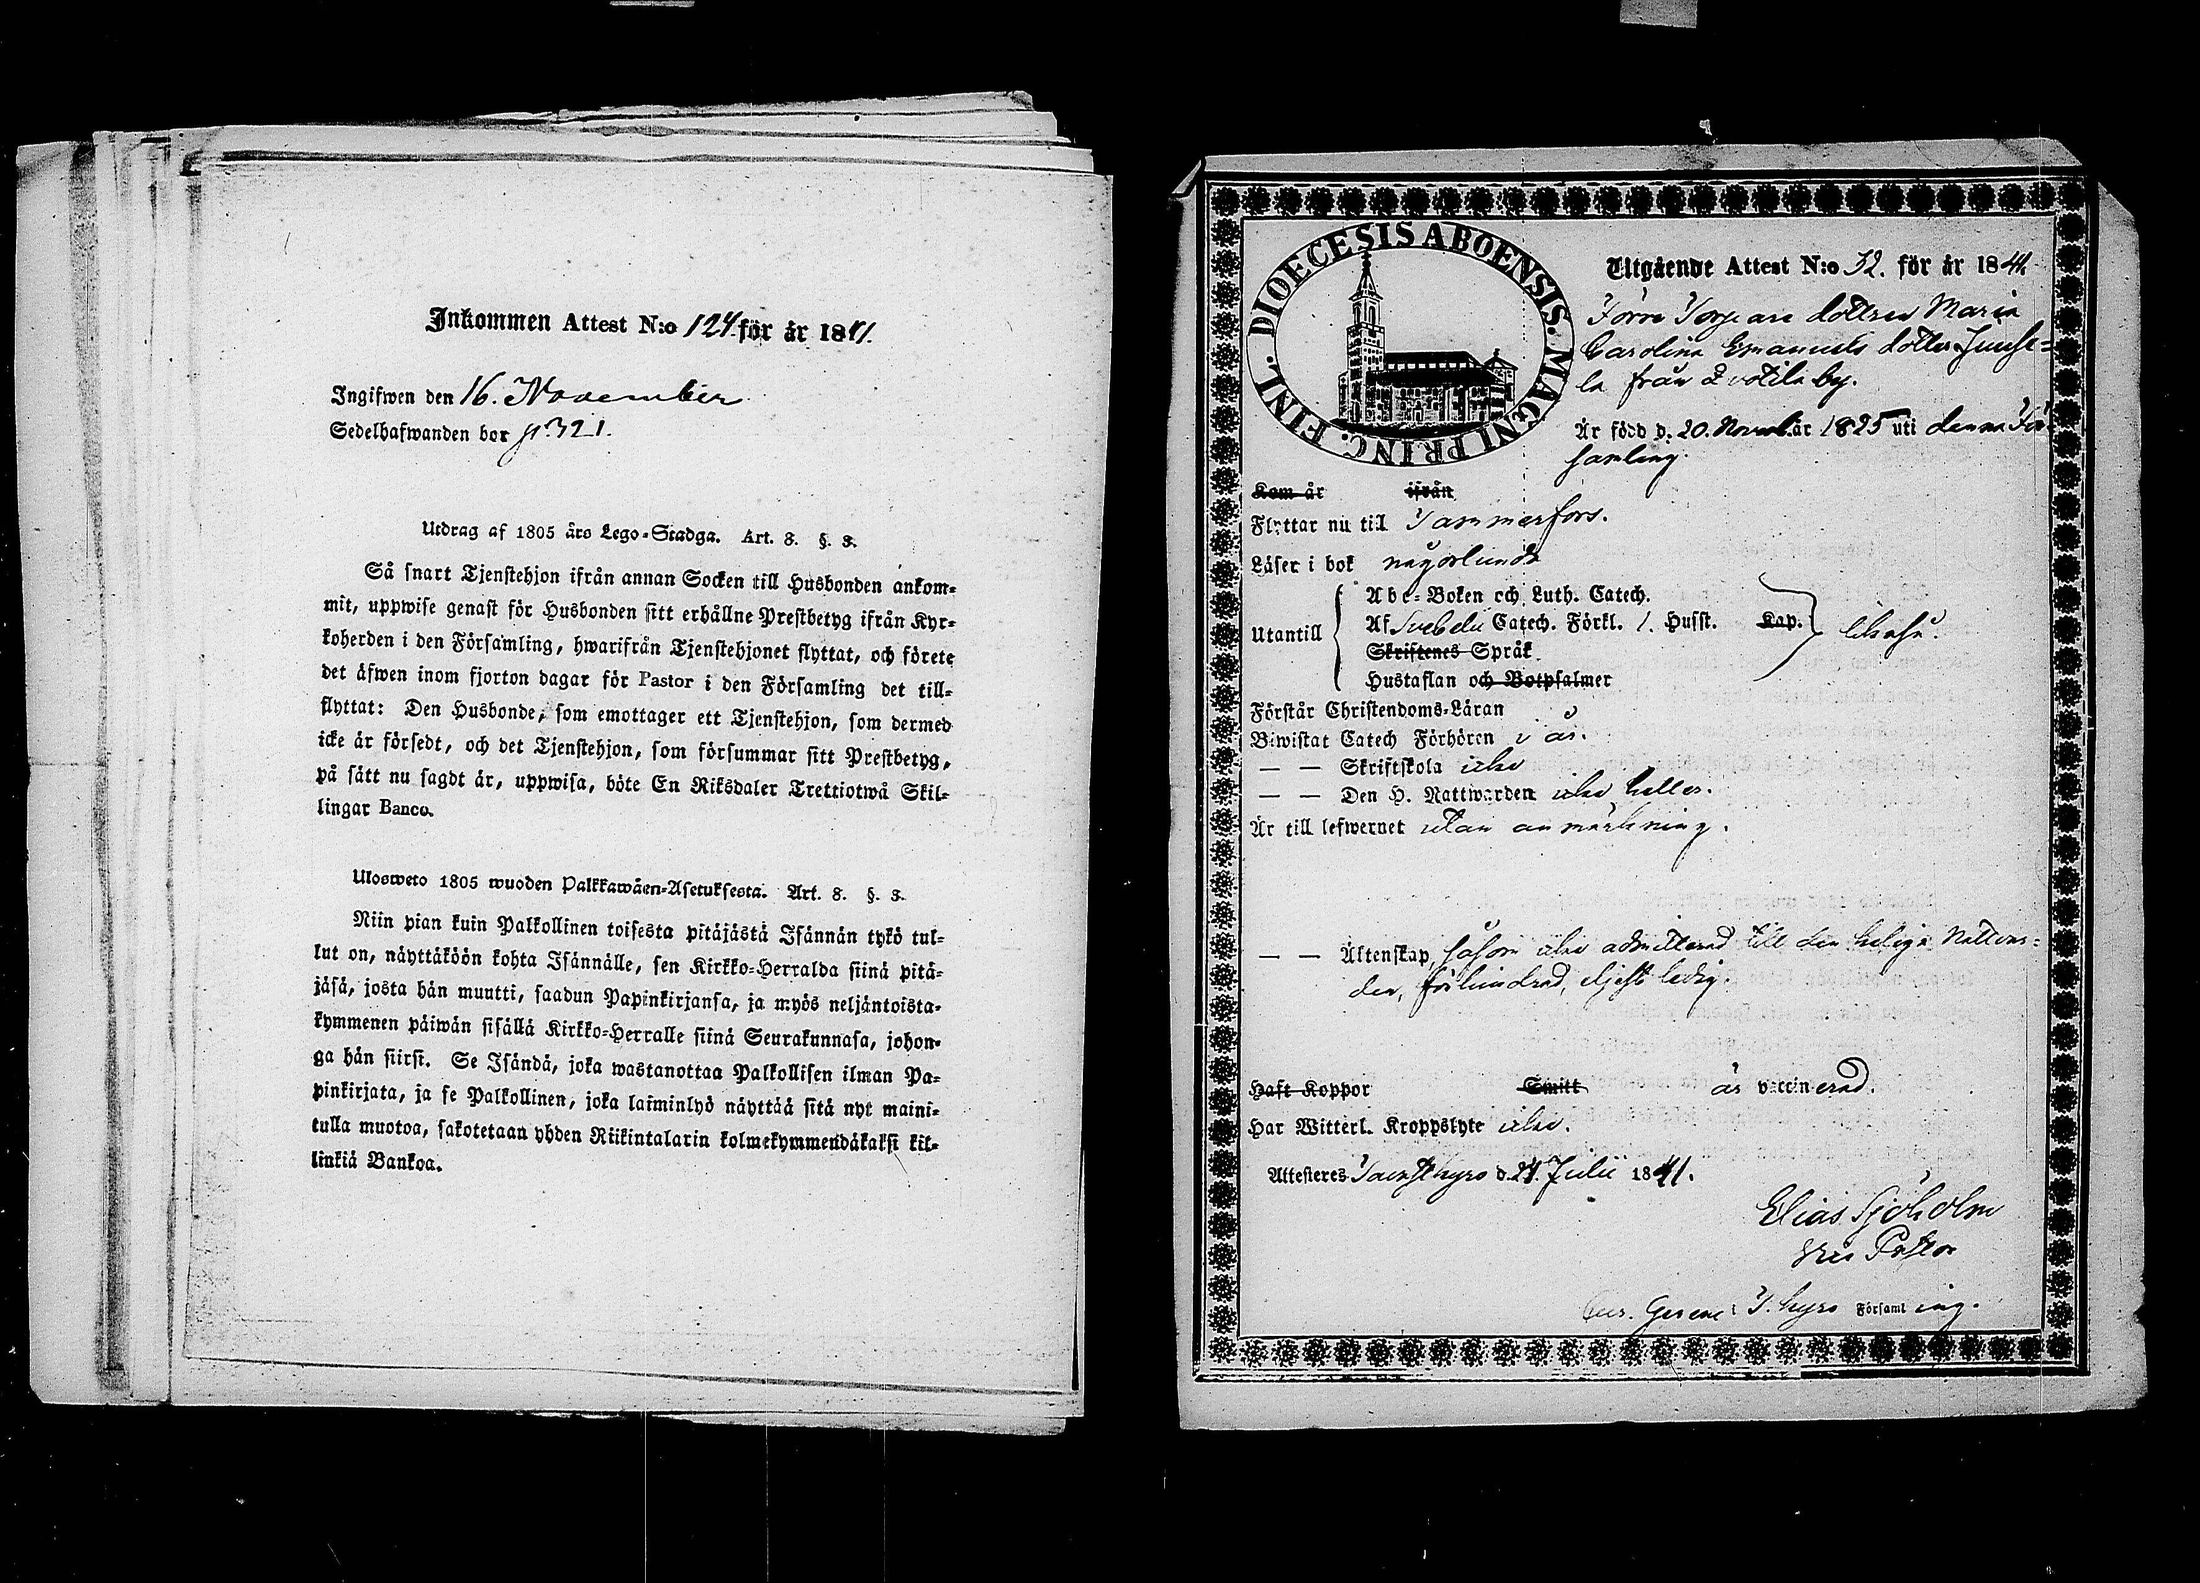 Inkommen Attest N:o 124 för år 1841.
Ingifwen den 16. November
Sedelhafwanden bor p 321.
Utdrag af 1805 års Lego-Stadga. Art. 8. §. 3.
Så snart Tjenstehjon ifrån annan Socken till Husbonden ankom-
mit, uppwise genast för Husbonden sitt erhållne Prestbetyg ifrån Kyr-
koherden i den Församling, hwarifrån Tjenstehjonet flyttat, och förete
det äfwen inom fjorton dagar för Pastor i den Församling det till-
flyttat: Den Husbonde, som emottager ett Tjenstehjon, som dermed
icke är försedt, och det Tjenstehjon, som försummar sitt Prestbetyg,
på sätt nu sagdt är, uppwisa, böte En Riksdaler Trettiotwå Skil-
lingar Banco.
Ulosweto 1805 wuoden Palkkawäen-Asetuksesta. Art. 8. §. 3.
Niin pian kuin Palkollinen toisesta pitäjästä Isännän tykö tul-
lut on, näyttäköön kohta Isännälle, sen Kirkko-Herralda siinä pitä-
jäsä, josta hän muutti, saadun Papinkirjansa, ja myös neljäntoista-
kymmenen päiwän sisällä Kirkko-Herralle siinä Seurakunnasa, johon-
ga hän siirsi. Se Isändä, joka wastanottaa Palkollisen ilman Pa-
pinkirjata, ja se Palkollinen, joka laiminlyö näyttää sitä nyt maini-
tulla muotoa, sakotetaan yhden Riikintalarin kolmekymmendäkaksi kil-
linkiä Bankoa.
DIOECESIS ABOENSIS. MAGNI PRINC. FINL.
Utgående Attest N:o 52. för år 1841.
Torpare dottren Maria
Carolina Emanuels dotter
la från by.
Är född d. 20. Novemb. år 1825 uti denna För-
samling.
Kom år ifrån
Flyttar nu till Tammerfors.
Läser i bok någorlunda
Utantill
Abc-Boken och Luth. Catech.
Af Svebelii Catech. Förkl. 1. Husst. Kap.
Skriftenes Språk
Hustaflan och Botpsalmer
likaså.
Förstår Christendoms-Läran
Biwistat Catech Förhören i år.
— — Skriftskola icke
— — Den H. Nattwarden icke heller.
Är till lefwernet utan anmärkning.
— — Äktenskap, såsom icke admitterad till den heliga Nattvar-
den, förhindrad, eljest ledig.
Haft Koppor Smitt är vaccinerad.
Har Witterl. Kroppslyte icke.
Attesteres Tawastkyro d. 24. Julii 1841.
Elias Sjöholm
Vice Pastor
Cur. Gerens i T. kyro Församling.